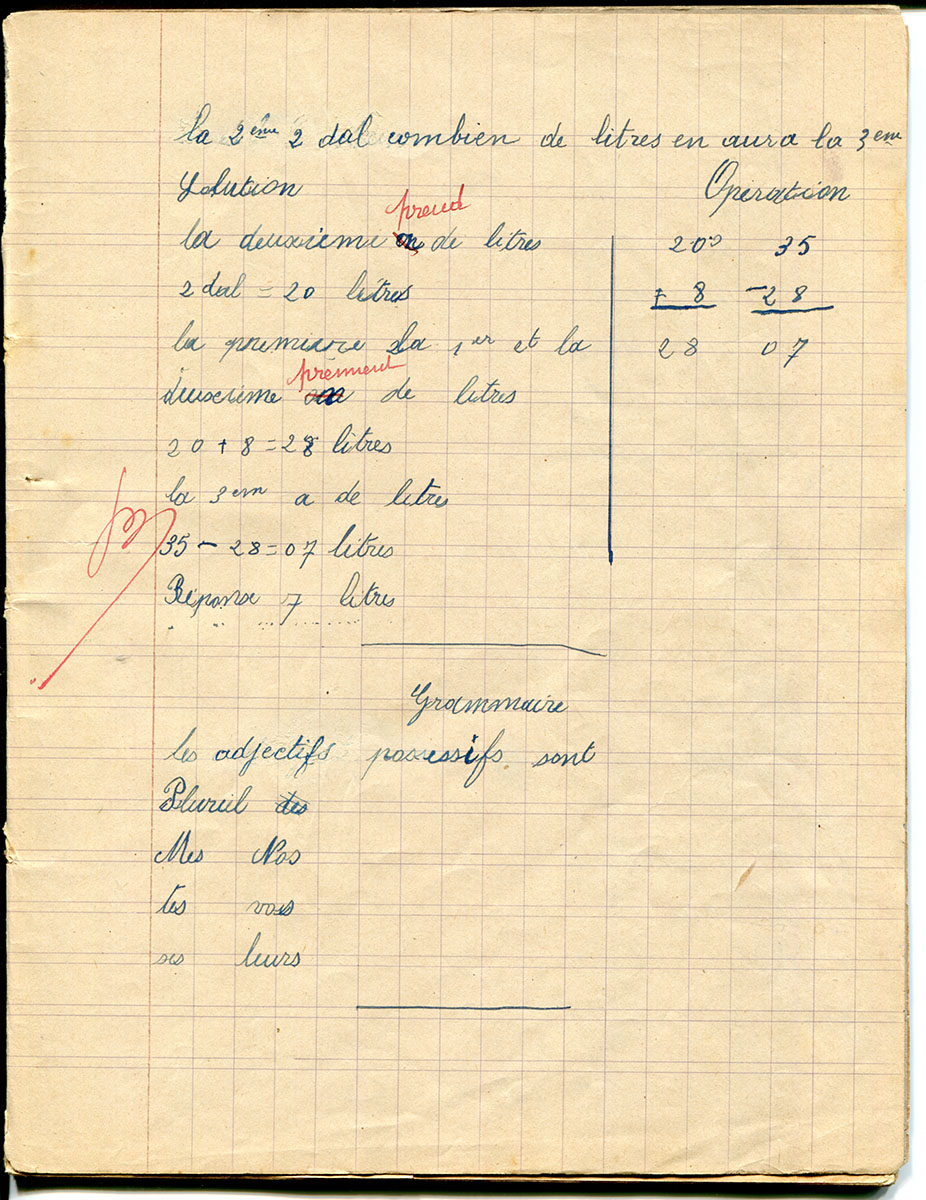 la 2ème 2 dal combien de litres en aura la 3eme
Solution
Opération
prend
la deuxieme a de litres
2 dal = 20 litres
la premiaire La 1er et la
prennent
deuxieme de litres
20 + 8 = 28 litres
la 3em a de litres
35 - 28 = 07 litres
Réponse 7 litres
20 35
+ 8 -28
28 07
Grammaire
les adjectifs possessifs sont
Plureil des
Mes Nos
tes vos
ses leurs